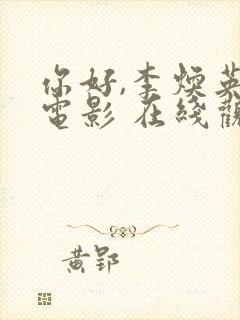 你好,李煥英
電影 在綫觀
黄郢